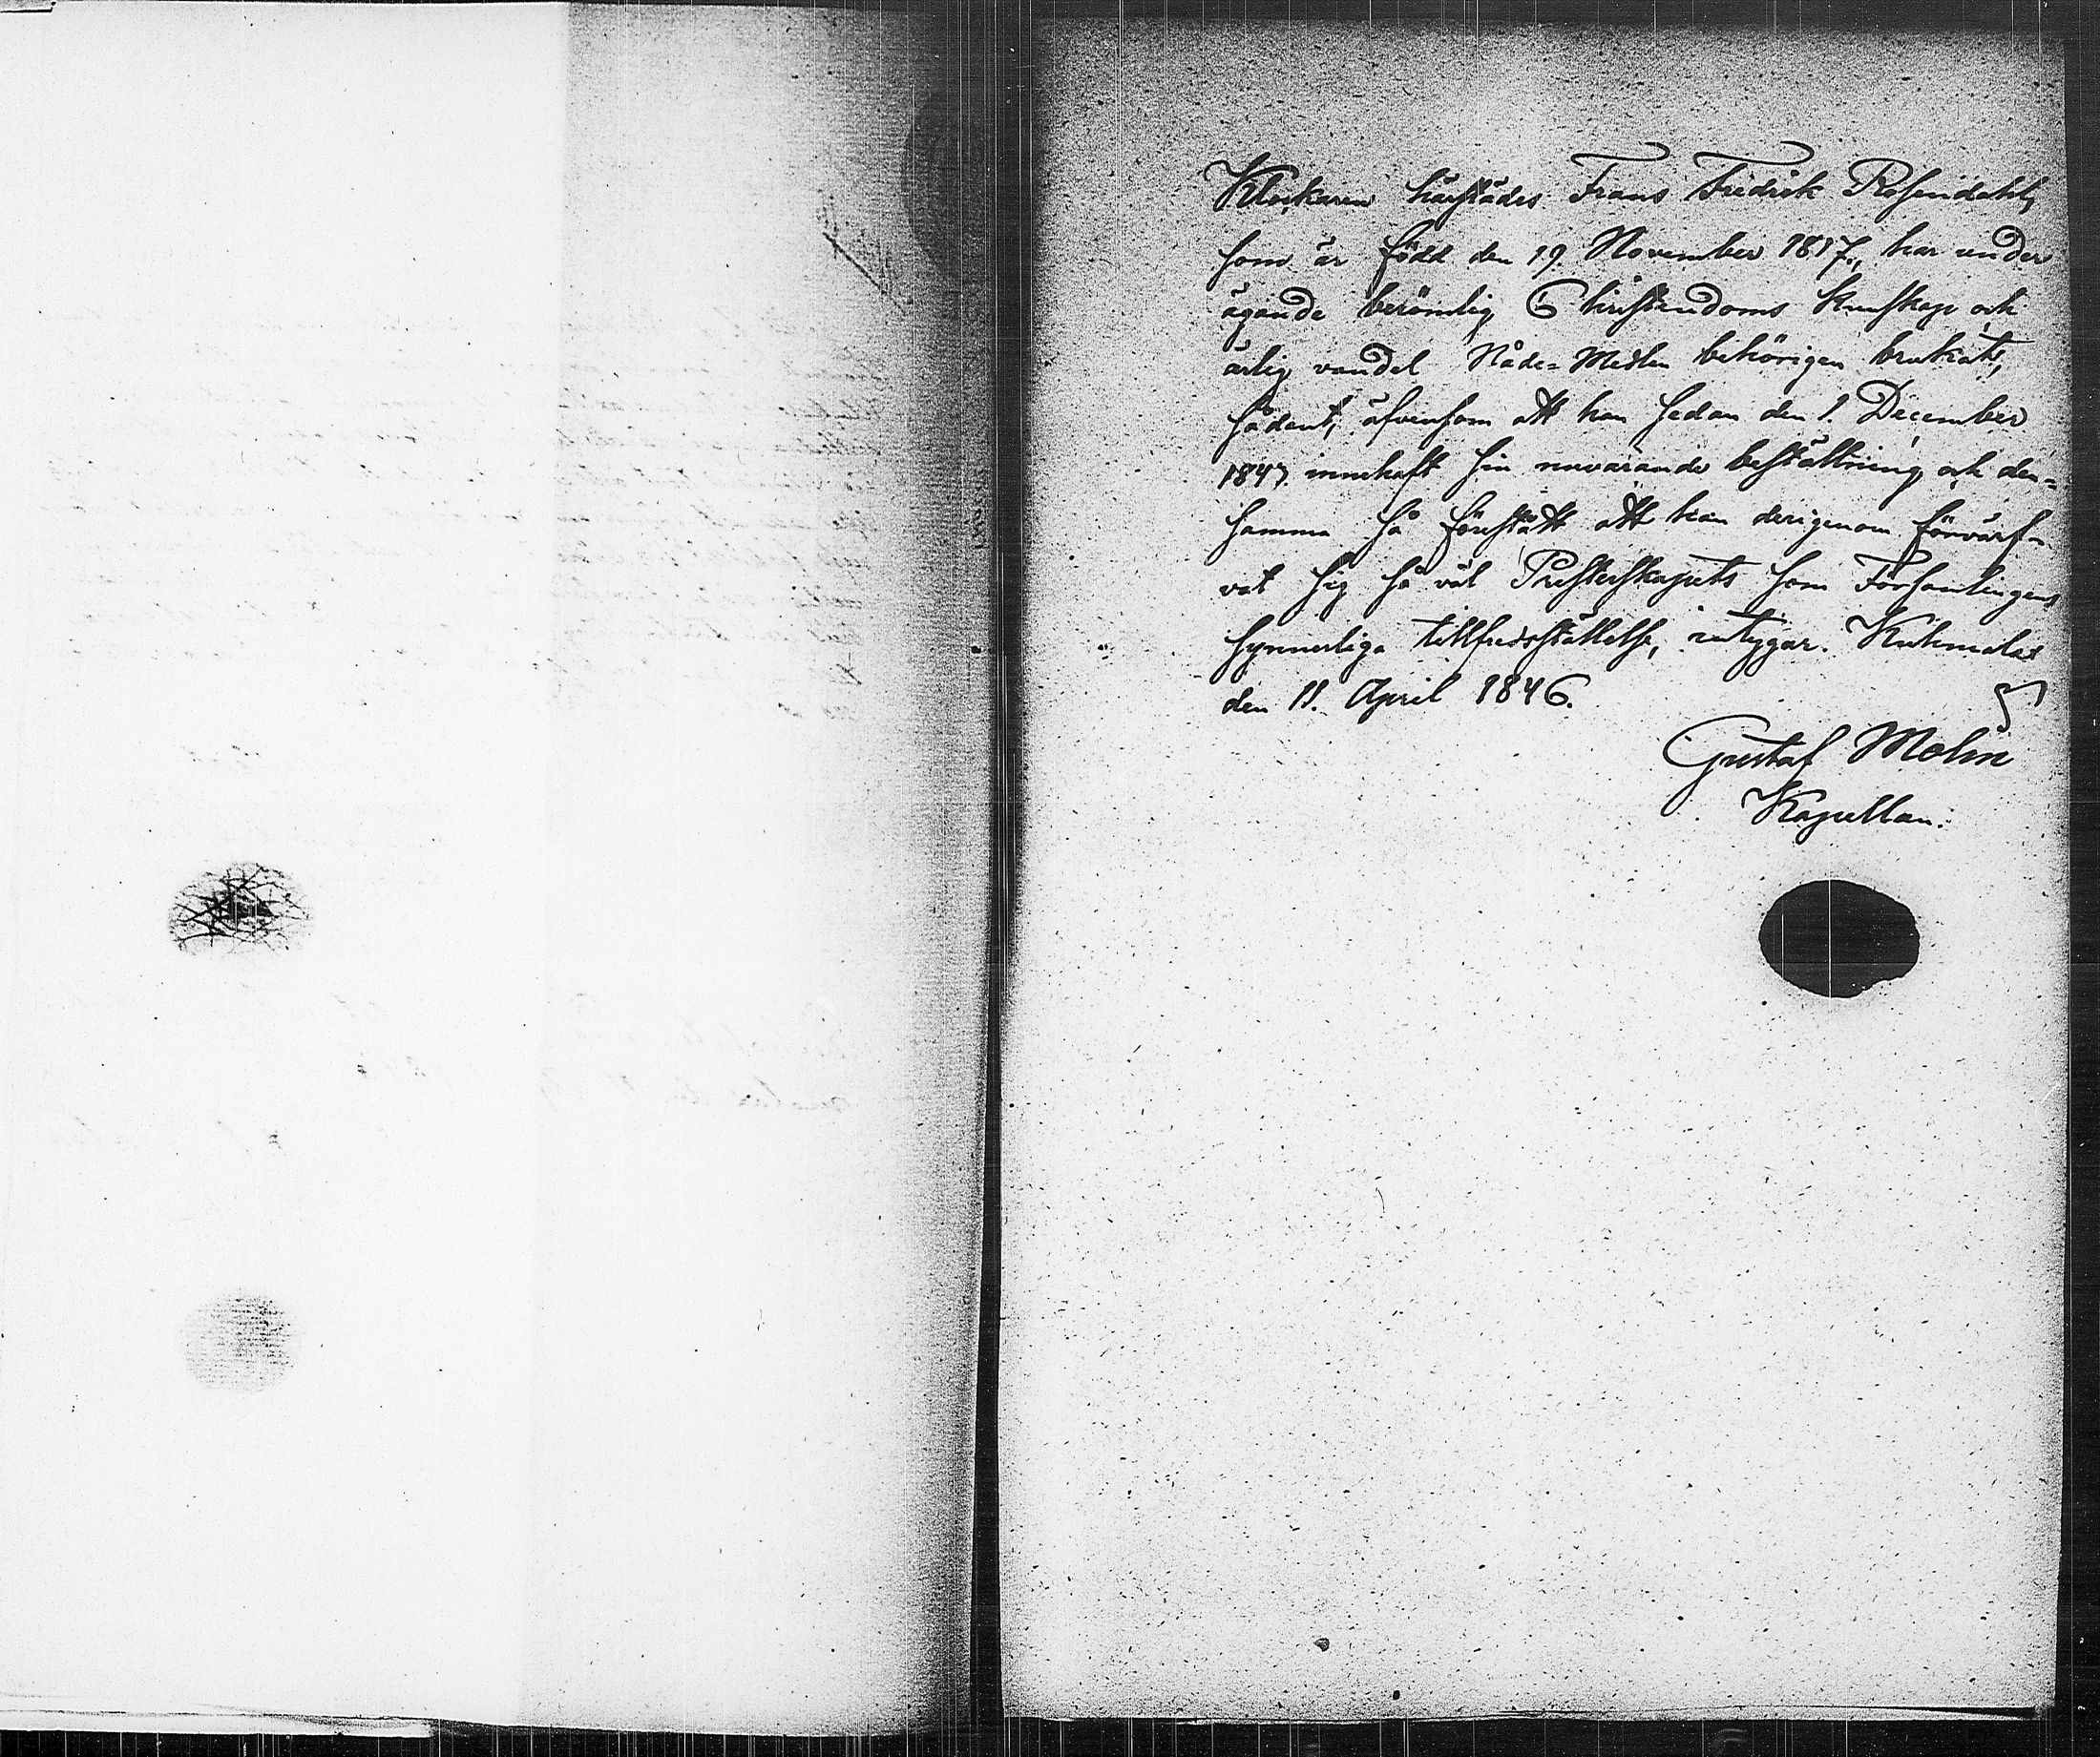 Klockaren härstädes Frans Fredrik Rosendahl,
som är född den 19. November 1817., har under
ägande berömlig Christendoms kunskap och
ärlig vandel Nåde=Medlen behörigen brukat,
sådant, äfvensom att han sedan den 1. December
innehaft sin nuvarande beställning och den=
samma så förestått att han derigenom förvärf=
vat sig så väl Presterskapets som Församlingens
synnerliga tillfredsställelse, intygar. Kuhmalax
den 11. April 1846.
Gustaf Molin
Kapellan.